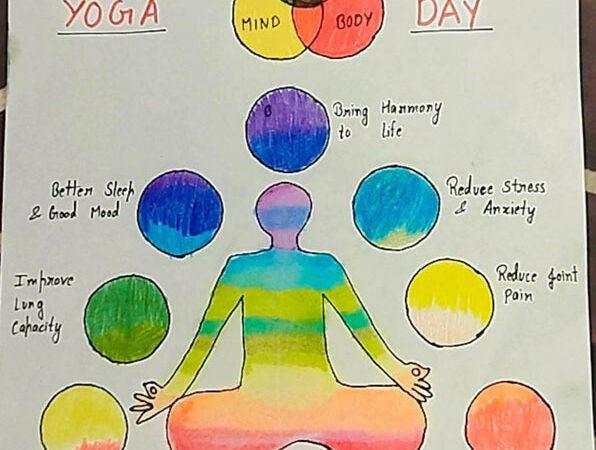 YOGA
DAY
MIND
BODY
Bring Harmony
to Life
Better Sleep
& Good Mood
Reduce Stress
& Anxiety
Improve
Lung
Capacity
Reduce Joint
Pain